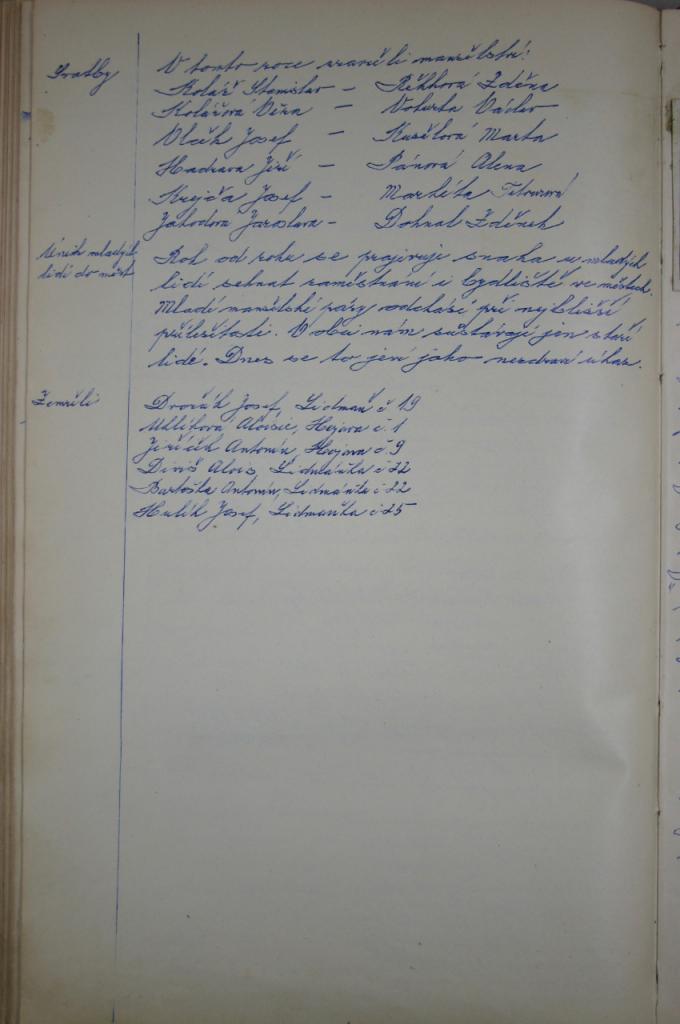 Svatby
V tomto roce uzavřeli manželství:
Kolář Stanislav – Řehková Zděna
Kolářová Věra – Vokurta Václav
Vlčěk Josef – Kuželová Marta
Hadrava Jiří – Pánová Alena
Krejča Josef – Markéta
Jahodová Jaroslava – Dohnal Zdeněk
Únik mladých
lidí do měst
Rok od roku se projevuje snaha u mladých
lidí sehnat zaměstnání i bydliště ve městech.
Mladí manželské páry odchází při nejbližší
příležitosti. V obci nám zůstávají jen staří
lidé. Dnes se to jeví jako nezdravý úkaz.
Zemřeli
Dvořák Josef, Lidmaň č 19
Aloisie, Hojava č. 1
Jiříčěk Antonín, Hojava č 9
Diviš Alois, Lidmaňka č 22
Bartoška Antonín, Lidmaňka č 22
Hulík Josef, Lidmaňka č 25